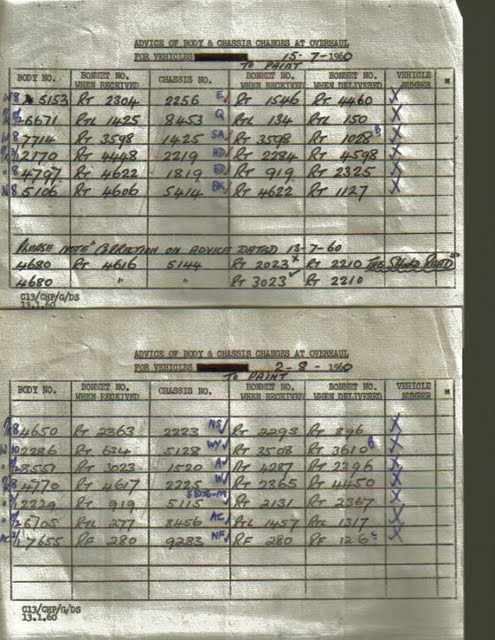 ADVICE OF BODY & CHASSIS CHANGES AT OVERHAUL
FOR VEHICLES 15-7-1960
TO PAINT
BODY NO. BONNET NO. WHEN RECEIVED CHASSIS NO. BONNET NO. WHEN RECEIVED BONNET NO. WHEN DELIVERED VEHICLE NUMBER
W8 5153 RT 2304 2256 E✓ RT 1546 RT 4460 X
6671 RTL 1425 8453 Q RTL 134 RTL 150 X
W8 7714 RT 3598 1425 SA✓ RT 3598 RT 1028 B X
2170 RT 4448 2219 HD✓ RT 2284 RT 4598 X
" 8 4797 RT 4622 1819 ED✓ RT 919 RT 2325 X
N8 5106 RT 4606 5414 BK✓ RT 4622 RT 1127 X
PLEASE NOTE" CORRECTION ON ADVICE DATED 13-7-60
4680 RT 4616 5144 RT 2023 X RT 2210
4680 " " RT 3023 ✓ RT 2210
C13/CHP/G/DS
13.1.60
ADVICE OF BODY & CHASSIS CHANGES AT OVERHAUL
FOR VEHICLES 2-8-1960
TO PAINT
BODY NO. BONNET NO. WHEN RECEIVED CHASSIS NO. BONNET NO. WHEN RECEIVED BONNET NO. WHEN DELIVERED VEHICLE NUMBER
4650 RT 2363 2223 NS✓ RT 2293 RT 896 X
2286 RT 634 5128 WY✓ RT 3508 RT 3610 B X
8551 RT 3023 1520 AV✓ RT 4287 RT 2296 X
4770 RT 4617 2225 W✓ RT 2365 RT 4450 X
2329 RT 919 5115 RT 2131 RT 2367 X
6705 RTL 277 8456 AC✓ RTL 1457 RTL 1317 X
7655 RF 280 9283 NF✓ RF 280 RF 126 c X
C13/CHP/G/DS
13.1.60